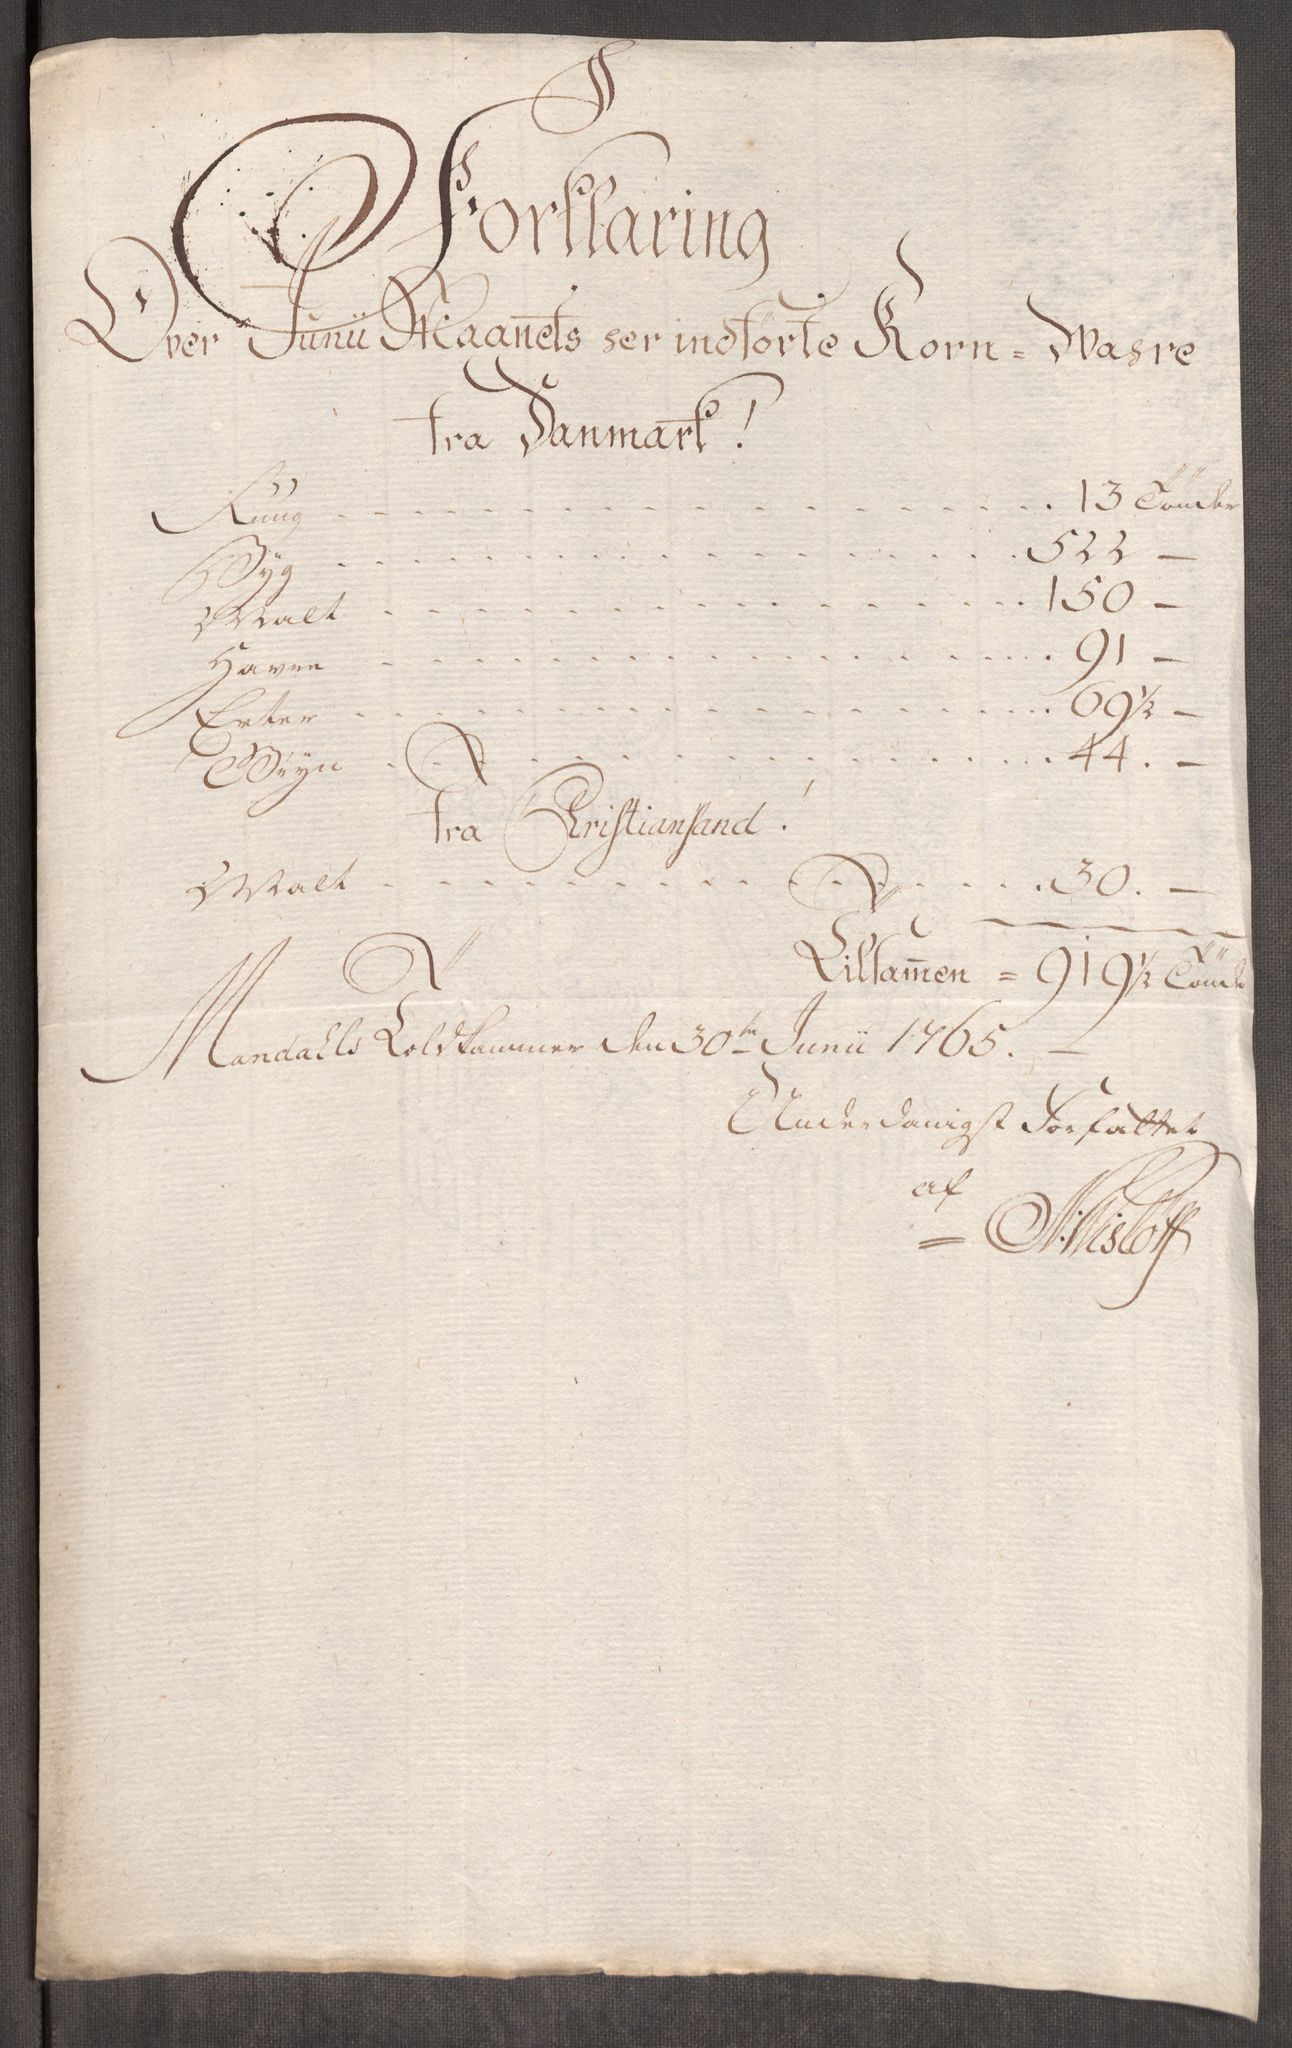 Forklaring
Over Junii Maanets her indförte Korn = Wahre
fra Danmark!
Ruug 13 Tönder
Byg 522 —
Malt 150 —
Havre 91 —
Erter 69½ —
Gryn 44. —
fra Christiansand!
Malt 30. —
Tilsam̅en = 919½ Tönder
Mandahls Toldkammer den 30te Junii 1765. —
Underdanigst Forfattet
af